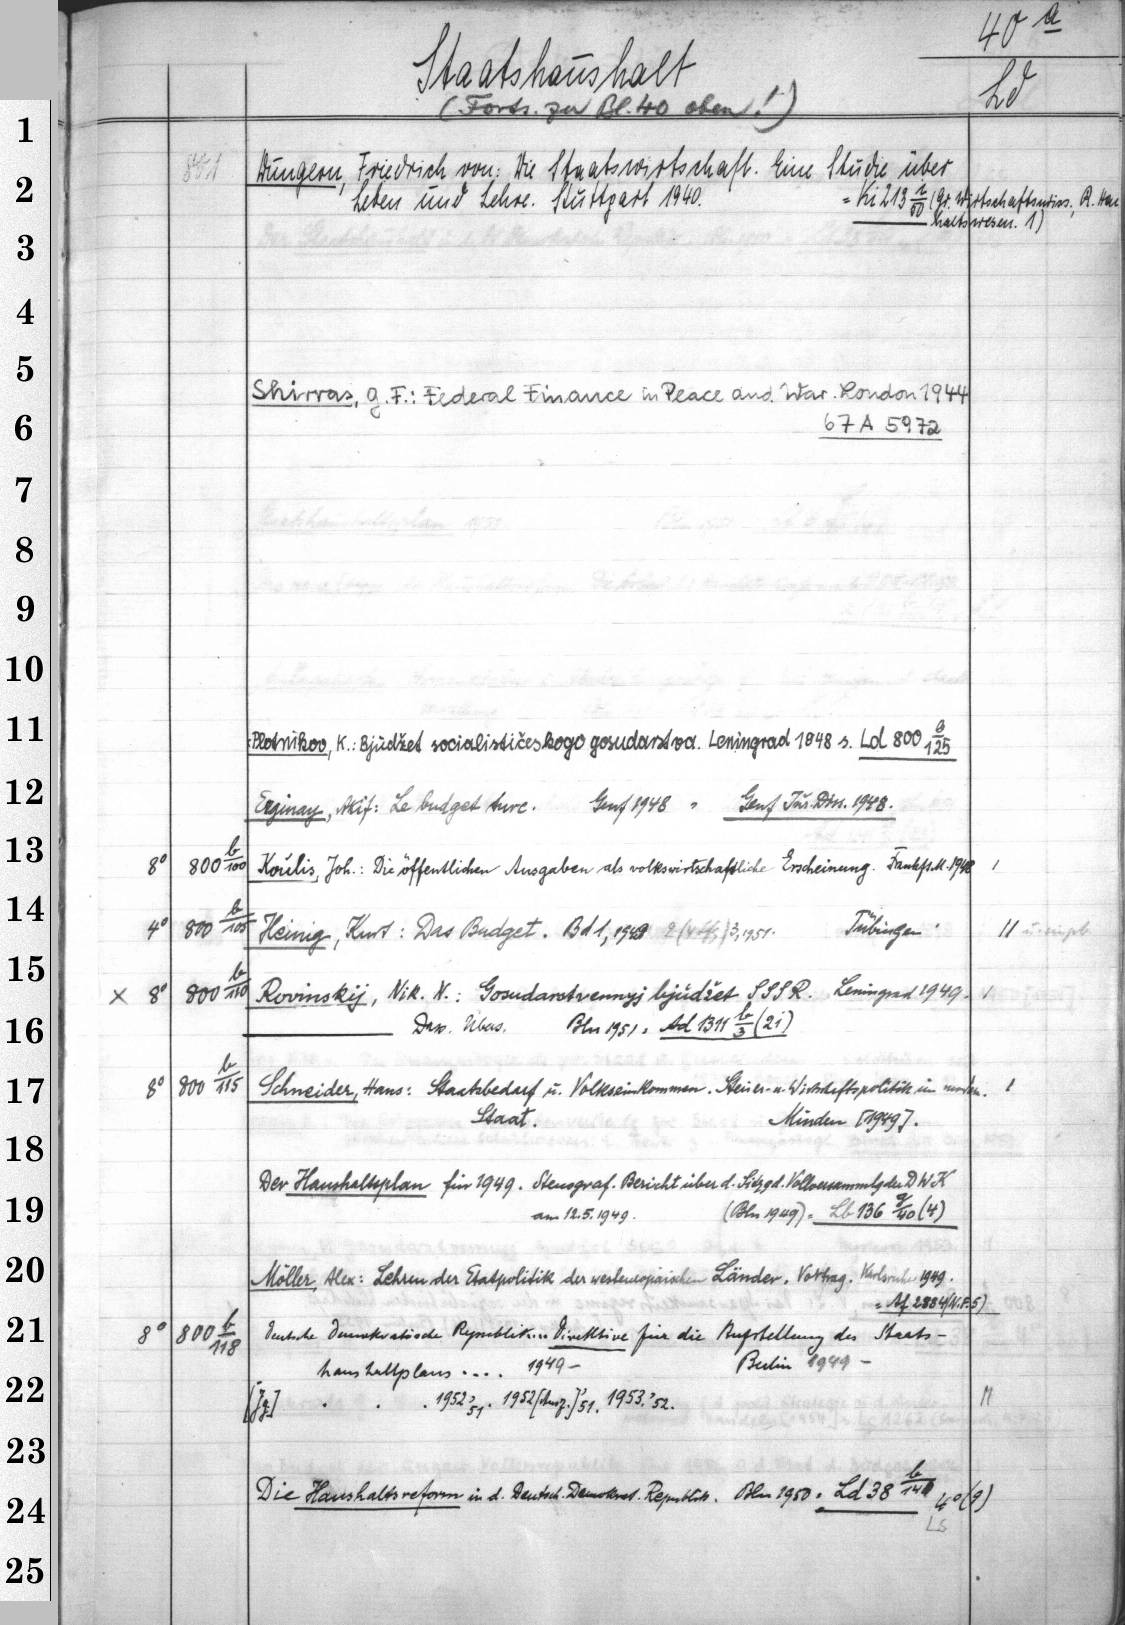 40 a
Ld
Staatshaushalt
(Forts. zu Bl. 40 oben!)
1
2
3
4
5
6
7
8
9
10
11
12
13
14
15
16
17
18
19
20
21
22
23
24
25
Dungern, Friedrich von: Die Staatswirtschaft. Eine Studie über
Leben und Lehre. Stuttgart 1940. = Ki 213 1/50 (Gr. Wirtschaftswiss., R. Hau
haltswesen. 1)
Shirras, G. F.: Federal Finance in Peace and War. London 1944
67 A 5972
Plotnikov, K.: Bjudžet socialističeskogo gosudarstva. Leningrad 1948 s. Ld 800 b/125
Erginay, Akif: Le budget turc. Genf 1948 = Genf Jur. Diss. 1948.
8° 800 b/100 Koulis, Joh.: Die öffentlichen Ausgaben als volkswirtschaftliche Erscheinung. Frankf. a. M. 1948 1
4° 800 b/105 Heinig, Kurt: Das Budget. Bd 1, 1949 3, 1951. Tübingen II
× 8° 800 b/110 Rovinskij, Nik. N.: Gosudarstvennyj bjudžet SSSR. Leningrad 1949. 1
Dass. Übers. Bln 1951 = Ad 1311 b/3 (21)
8° 800 b/115 Schneider, Hans: Staatsbedarf u. Volkseinkommen. Steuer- u. Wirtschaftspolitik im modern. 1
Staat. Minden [1949].
Der Haushaltsplan für 1949. Stenograf. Bericht über d. Sitzg d. Vollversammlg der DWK
am 12.5.1949. (Bln 1949) = Lb 136 g/40 (4)
Möller, Alex: Lehren der Etatpolitik der westeuropäischen Länder. Vortrag. Karlsruhe 1949.
= Af 2884 (N.F. 5)
8° 800 b/118 Deutsche Demokratische Republik.... Direktive für die Aufstellung des Staats-
haushaltplans .... 1949- Berlin 1949 -
[Jg.] . . . 1952,'51. 1952 [Ausz.]'51. 1953.'52. II
Die Haushaltsreform in d. Deutsch. Demokrat. Republik. Bln 1950 = Ld 38 b/141 4° (9)
LS